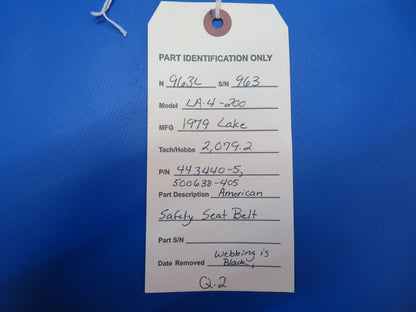 PART IDENTIFICATION ONLY
N 963L S/N 963
Model LA-4-200
MFG 1979 Lake
Tach/Hobbs 2,079.2
P/N 443440-5,
500638-405
Part Description American
Safety Seat Belt
Part S/N
Webbing is
Date Removed Black,
Q.2